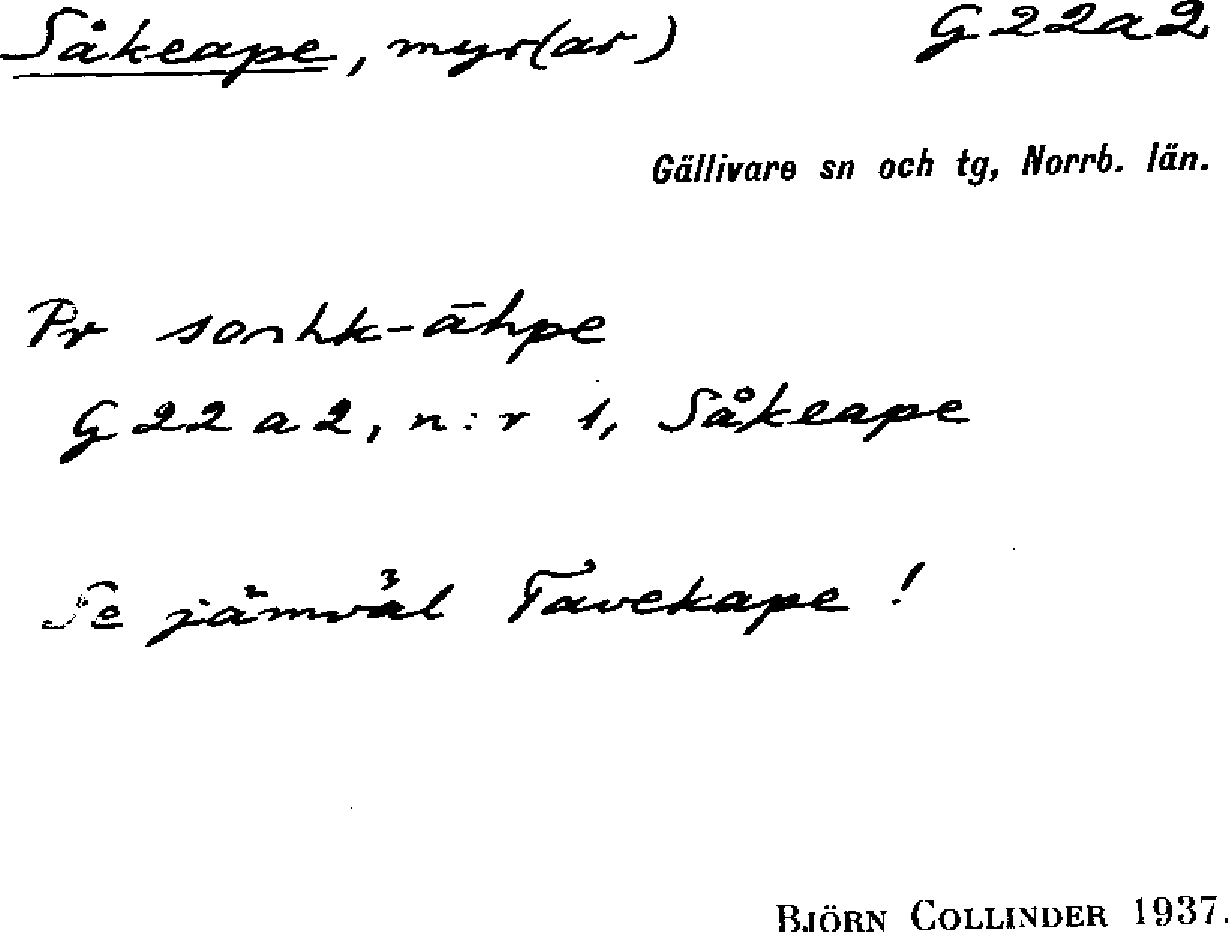 Såkeape, myr(ar) G22a2
Gällivare sn och tg, Norrb. län.
Pr sorhk-āhpe
G22a2, n:r 1, Såkeape
Se jämväl Tavekape!
BJÖRN COLLINDER 1937.